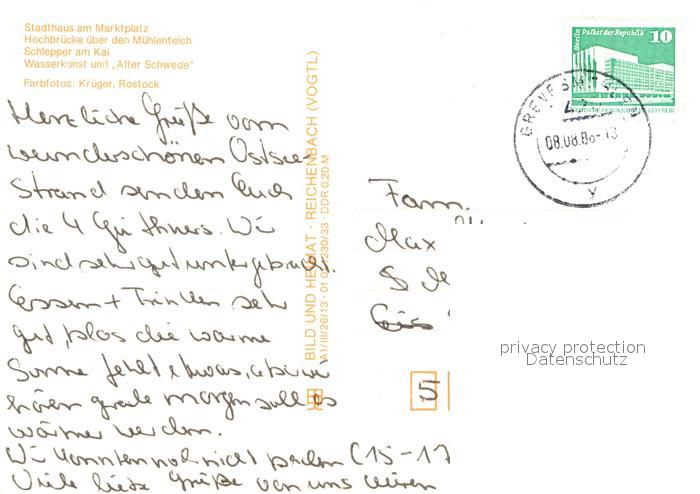 Stadthaus am Marktplatz
Hochbrücke über den Mühlenteich
Schlepper am Kai
Wasserkunst und „Alter Schwede"
Farbfotos: Krüger, Rostock
Herzliche Grüße vom
wunderschönen Ostsee-
Strand senden Euch
die 4 Günthners. Wir
sind sehr gut untergebracht.
Essen + Trinken sehr
gut, blos die warme
Sonne fehlt etwas, aber wir
hören gerade morgen soll es
wärmer werden.
Wir konnten noch nicht baden (15-17
Viele liebe Grüße von uns
BILD UND HEIMAT · REICHENBACH (VOGTL)
A1/III/26/13 · 01 0230/33 · DDR 0,20 M
Berlin Palast der Republik 10
DEUTSCHE DEMOKRATISCHE REPUBLIK
GREVESMÜHLEN
08.08.86-13
y
Fam.
Max
5
privacy protection
Datenschutz